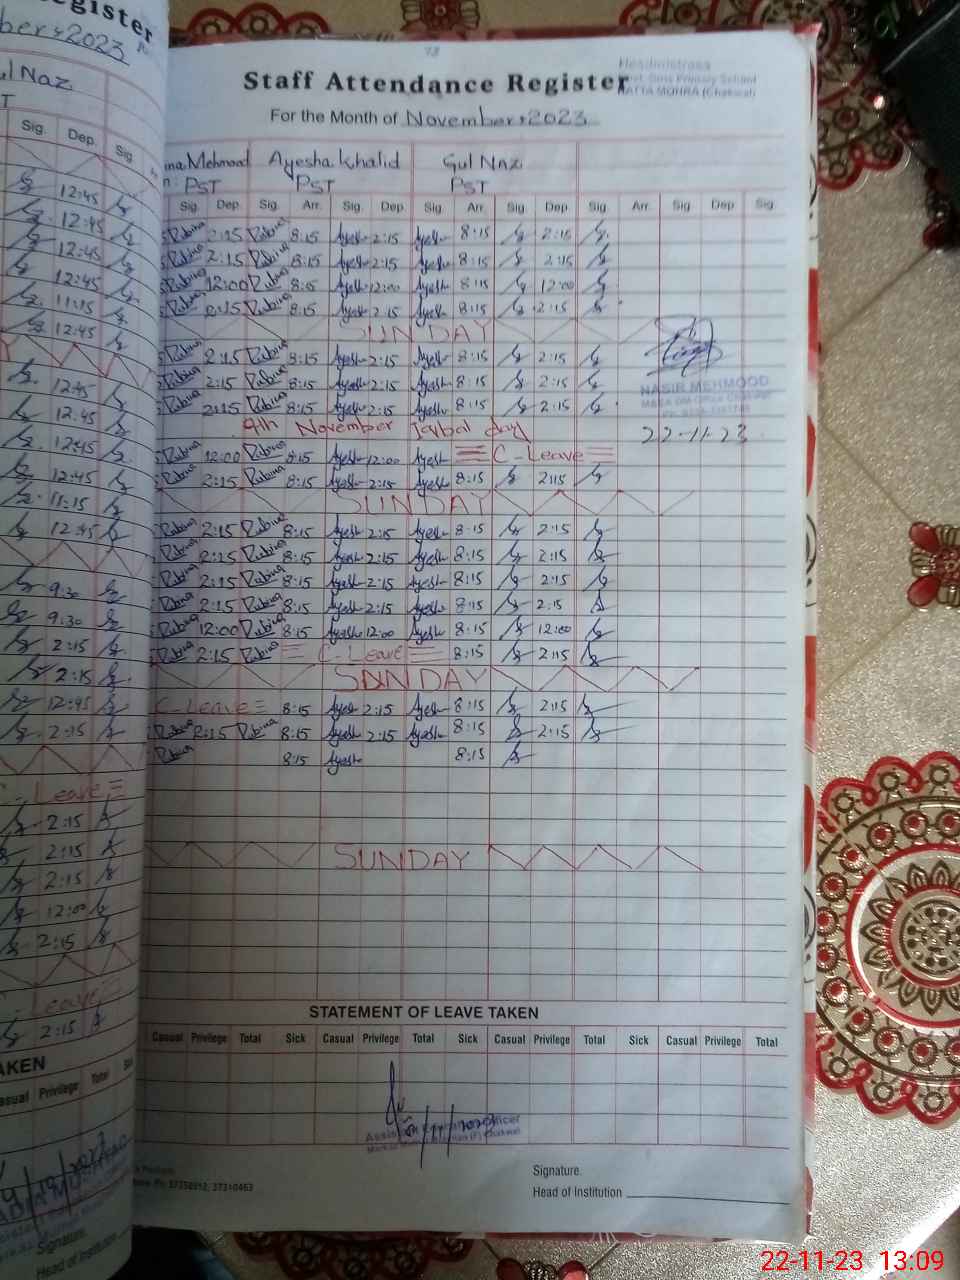 78
Headmistress
Govt. Girls Primary School
Staff Attendance Register
MATTA MOHRA (Chakwal)
For the Month of November 2023
Mehmood Ayesha Khalid Gul Naz
PST PST PST
Sig. Dep. Sig. Arr. Sig. Dep. Sig. Arr. Sig. Dep. Sig. Arr. Sig. Dep. Sig.
Rubina 2:15 Rubina 8:15 Ayesh 2:15 Ayesh 8:15 2:15
Rubina 2:15 Rubina 8:15 Ayesh 2:15 Ayesh 8:15 2:15
Rubina 12:00 Rubina 8:15 Ayesh 12:00 Ayesh 8:15 12:00
Rubina 2:15 Rubina 8:15 Ayesh 2:15 Ayesh 8:15 2:15
SUNDAY
Rubina 2:15 Rubina 8:15 Ayesh 2:15 Ayesh 8:15 2:15
Rubina 2:15 Rubina 8:15 Ayesh 2:15 Ayesh 8:15 2:15
NASIR MEHMOOD
Rubina 2:15 Rubina 8:15 Ayesh 2:15 Ayesh 8:15 2:15
9th November Iqbal day
22-11-23
Rubina 12:00 Rubina 8:15 Ayesh 12:00 Ayesh C-Leave
Rubina 2:15 Rubina 8:15 Ayesh 2:15 Ayesh 8:15 2:15
SUNDAY
Rubina 2:15 Rubina 8:15 Ayesh 2:15 Ayesh 8:15 2:15
Rubina 2:15 Rubina 8:15 Ayesh 2:15 Ayesh 8:15 2:15
Rubina 2:15 Rubina 8:15 Ayesh 2:15 Ayesh 8:15 2:15
Rubina 2:15 Rubina 8:15 Ayesh 2:15 Ayesh 8:15 2:15
Rubina 12:00 Rubina 8:15 Ayesh 12:00 Ayesh 8:15 12:00
Rubina 2:15 Rubina C-Leave 8:15 2:15
SUNDAY
C-Leave 8:15 Ayesh 2:15 Ayesh 8:15 2:15
Rubina 2:15 Rubina 8:15 Ayesh 2:15 Ayesh 8:15 2:15
Rubina 8:15 Ayesh 8:15
SUNDAY
STATEMENT OF LEAVE TAKEN
Casual Privilege Total Sick Casual Privilege Total Sick Casual Privilege Total Sick Casual Privilege Total
Signature.
Head of Institution
Ph: 37358912, 37310463
Register
2023
Gul Naz
Sig. Dep. Sig.
12:45
12:45
12:45
12:45
11:15
12:45
12:45
12:45
12:45
12:45
11:15
12:45
9:30
9:30
2:15
2:15
12:45
2:15
Leave
2:15
2:15
2:15
12:00
2:15
Leave
2:15
TAKEN
Casual Privilege Total
Signature.
Head of Institution
22-11-23 13:09